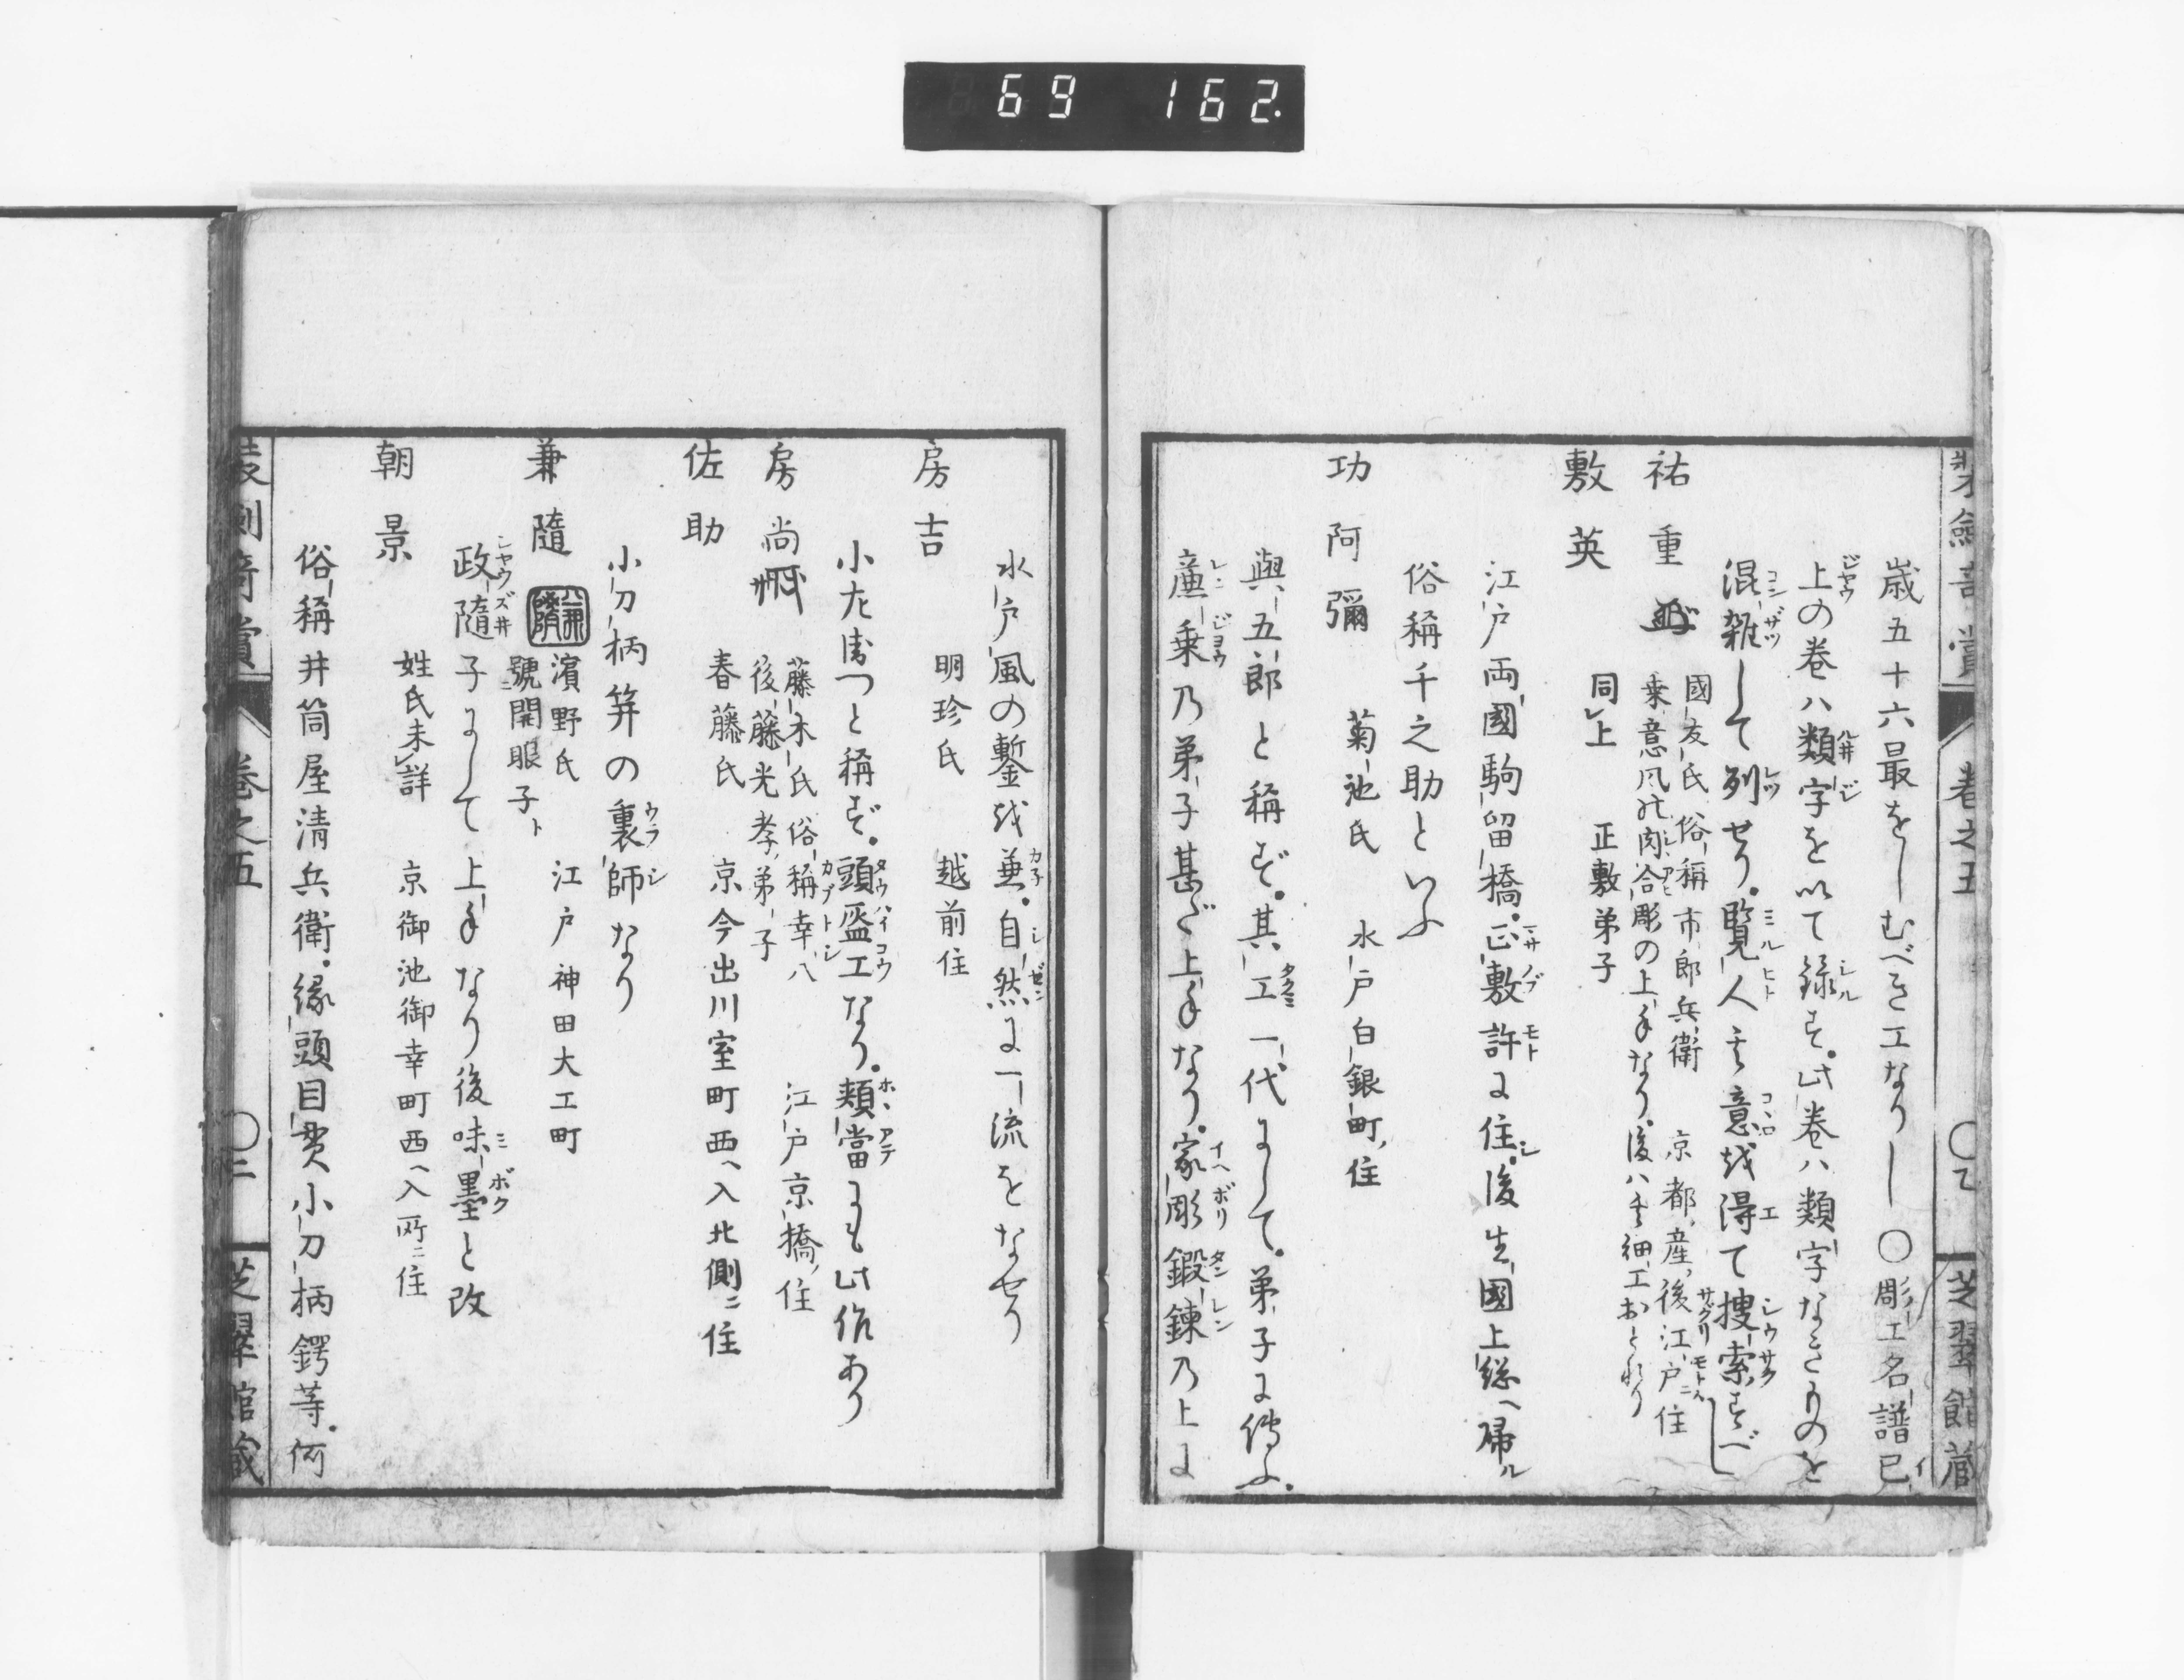 69 162.
装劔奇賞 巻之五 〇二 芝翠館蔵
歳五十六最をしむべき工なりし〇彫工名譜已
上の巻ハ類字を以て録す。此巻ハ類字なきものを
混雑して列せり。覧人其意越得て捜索すべし
祐重 國友氏 俗稱市郎兵衛 京都産後江戸ニ住
乗意風乃肉合彫の上手なり。後ハ手細工おとれり
敷英 同上 正敷弟子
江戸両國駒留橋。正敷許に住。後生國上総ヘ帰ル
俗稱千之助といふ
功阿彌 菊池氏 水戸白銀町住
與五郎と稱ず。其工一代にして。弟子に傳ふ。
廉乗乃弟子甚ダ上手なり。家彫鍛錬乃上に
水戸風の鏨越兼。自然に一流をなせり
房吉 明珍氏 越前住
小左衛つと稱ず。頭盔工なり。頬當にも此作あり
房尚 藤木氏 俗稱幸八 江戸京橋住
後藤光孝弟子
佐助 春藤氏 京今出川室町西ヘ入北側ニ住
小刀柄笄の裏師なり
兼隨 兼隨 濱野氏 江戸神田大工町
號開眼子ト
政隨子にして上手なり後味墨と改
朝景 姓氏未詳 京御池御幸町西ヘ入所ニ住
俗稱井筒屋清兵衛。縁頭目貫小刀柄鍔等。何
装劔奇賞 巻之五 〇二 芝翠館蔵